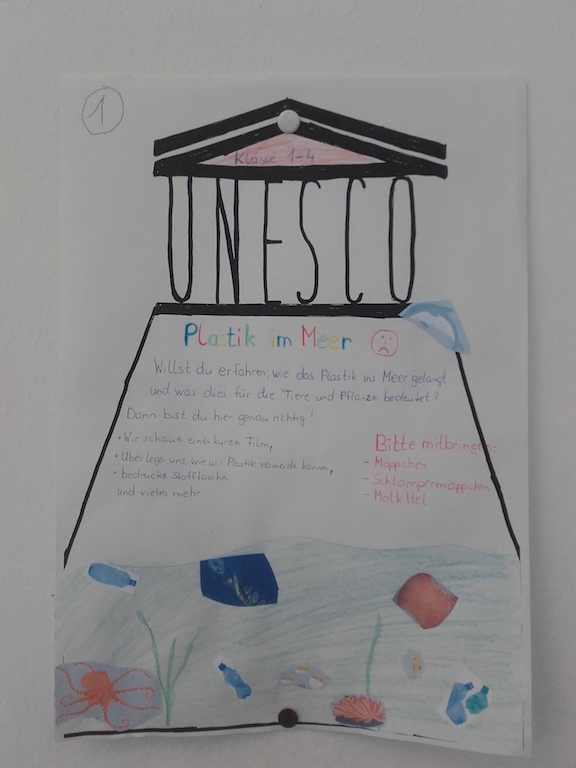 1
Klasse 1-4
UNESCO
Plastik im Meer
Willst du erfahren, wie das Plastik ins Meer gelangt
und was dies für die Tiere und Pflanzen bedeutet?
Dann bist du hier genau richtig!
• Wir schauen einen kurzen Film,
• Überlegen uns, wie wir Plastik vermeiden können,
• bedrucke Stofftasche
und vieles mehr
Bitte mitbringen:
- Mäppchen
- Schlampermäppchen
- Malkittel